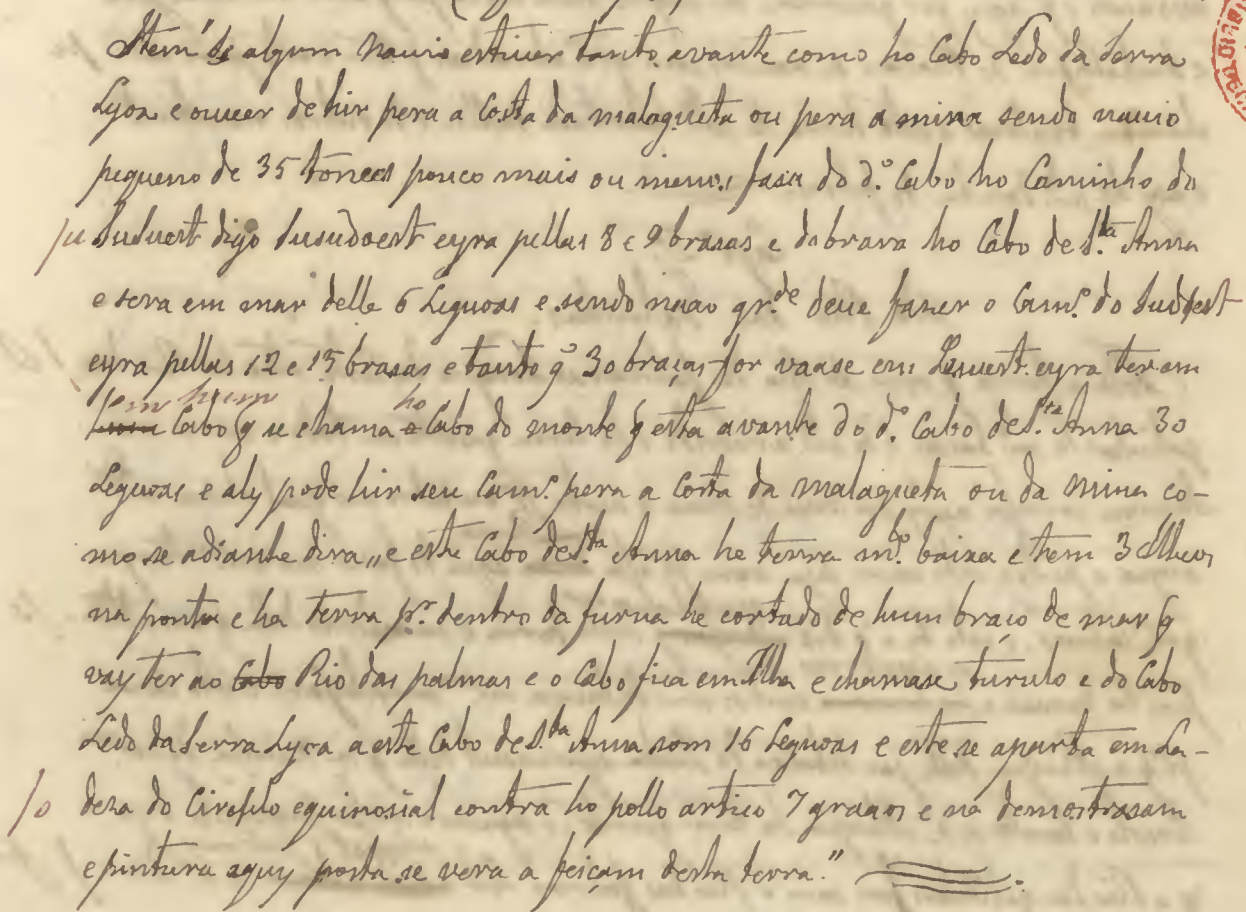 Item se algum navio estiver tanto avante como ho Cabo Ledo da Serra
Lyoa e ouuer de hir pera a Costa da malagueta ou pera a mina sendo nauio
pequeno de 35 tonees pouco mais ou menos fasa do d.º Cabo ho Caminho do
su Suduest digo Susudoest eyra pellas 8 e 9 brasas e dobrara ho Cabo de S.ta Anna
e sera em mar delle 6 Leguoas e sendo nauo gr.de deue fazer o Cam.º do Sudoest
eyra pellas 12 e 15 brasas e tanto q̃ 30 braças for vaase em Lesuest eyra ter em
em hum Cabo q̃ se chama ho Cabo do monte q̃ esta avante do d.º Cabo de S.ta Anna 30
Leguoas e aly pode hir seu Cam.º pera a Costa da malagueta ou da mina co-
mo se adiante dira,, e este Cabo de S.ta Anna he terra m.to baixa e tem 3 Ilheos
na ponta e ha terra p.r dentro da furna he cortado de hum braço de mar q̃
vay ter ao Cabo Rio das palmas e o Cabo fica em Ilha e chamase turulo e do Cabo
Ledo da Serra Lyoa a este Cabo de S.ta Anna som 16 Leguoas e este se aparta em La-
/o deza do Circulo equinosial contra ho pollo artico 7 graaos e na demostrasam
e pintura aquy posta se vera a feiçam desta terra."